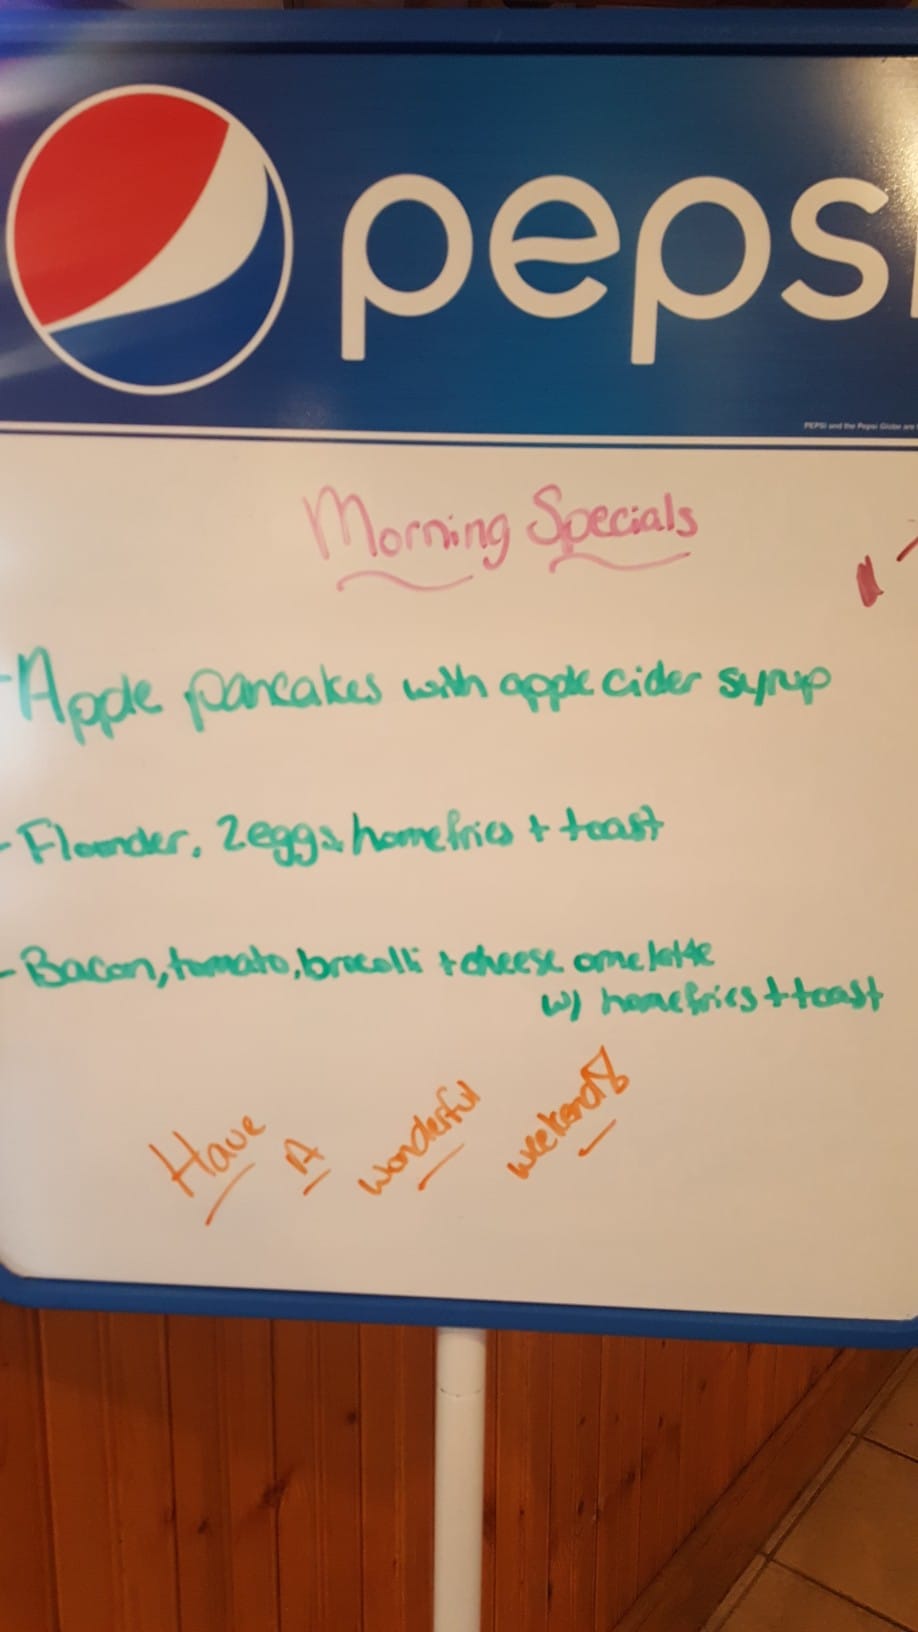 pepsi
PEPSI and the Pepsi Globe are
Morning Specials
- Apple pancakes with apple cider syrup
- Flounder, 2eggs, homefries + toast
- Bacon, tomato, brocolli + cheese omelette
w/ homefries + toast
Have A wonderful weekend!